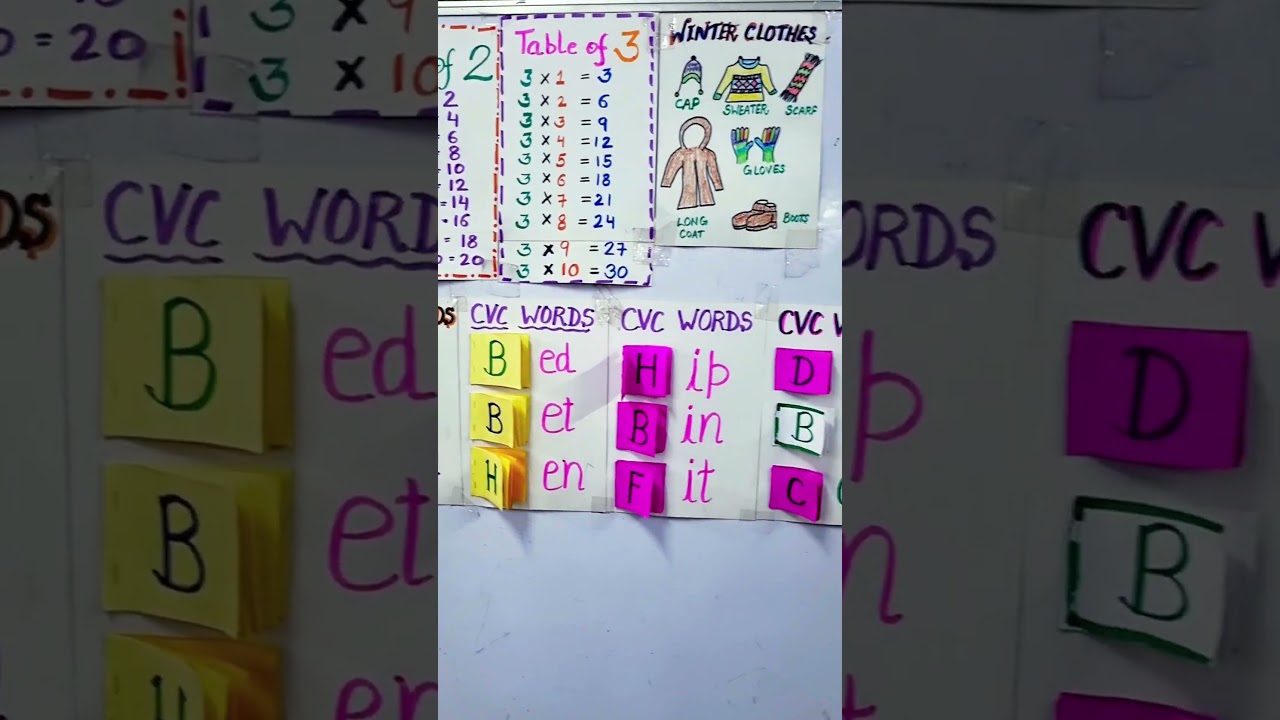 of 2
2
4
6
8
10
= 12
= 14
= 16
= 18
= 20
Table of 3
3 × 1 = 3
3 × 2 = 6
3 × 3 = 9
3 × 4 = 12
3 × 5 = 15
3 × 6 = 18
3 × 7 = 21
3 × 8 = 24
3 × 9 = 27
3 × 10 = 30
WINTER CLOTHES
CAP
SWEATER
SCARF
GLOVES
LONG COAT
BOOTS
DS
CVC WORDS
B ed
B et
H en
CVC WORDS
H ip
B in
F it
CVC W
D
B
C
= 20
3 × 9
3 × 10
DS
CVC WORD
B ed
B et
H en
ORDS
p
n
CVC W
D
B